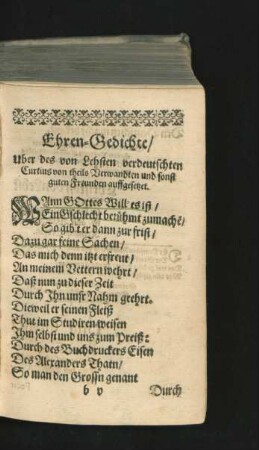 Ehren-Gedichte/
Uber des von Lehsten verdeutschten
Curtius von theils Verwandten und sonst
guten Freunden auffgesetzet.
WAnn GOttes Will es ist/
Ein Gschlecht berühmt zumachē/
So gibt er dann zur frist/
Dazu gar feine Sachen/
Das mich denn itzt erfreut/
An meinem Vettern wehrt/
Daß nun zu dieser Zeit
Durch Ihn unsr Nahm geehrt.
Dieweil er seinen Fleiß
Thut im Studiren weisen
Ihm selbst und uns zum Preiß:
Durch des Buchdruckers Eisen
Des Alexanders Thatn/
So man den Grossn genant
b v Durch